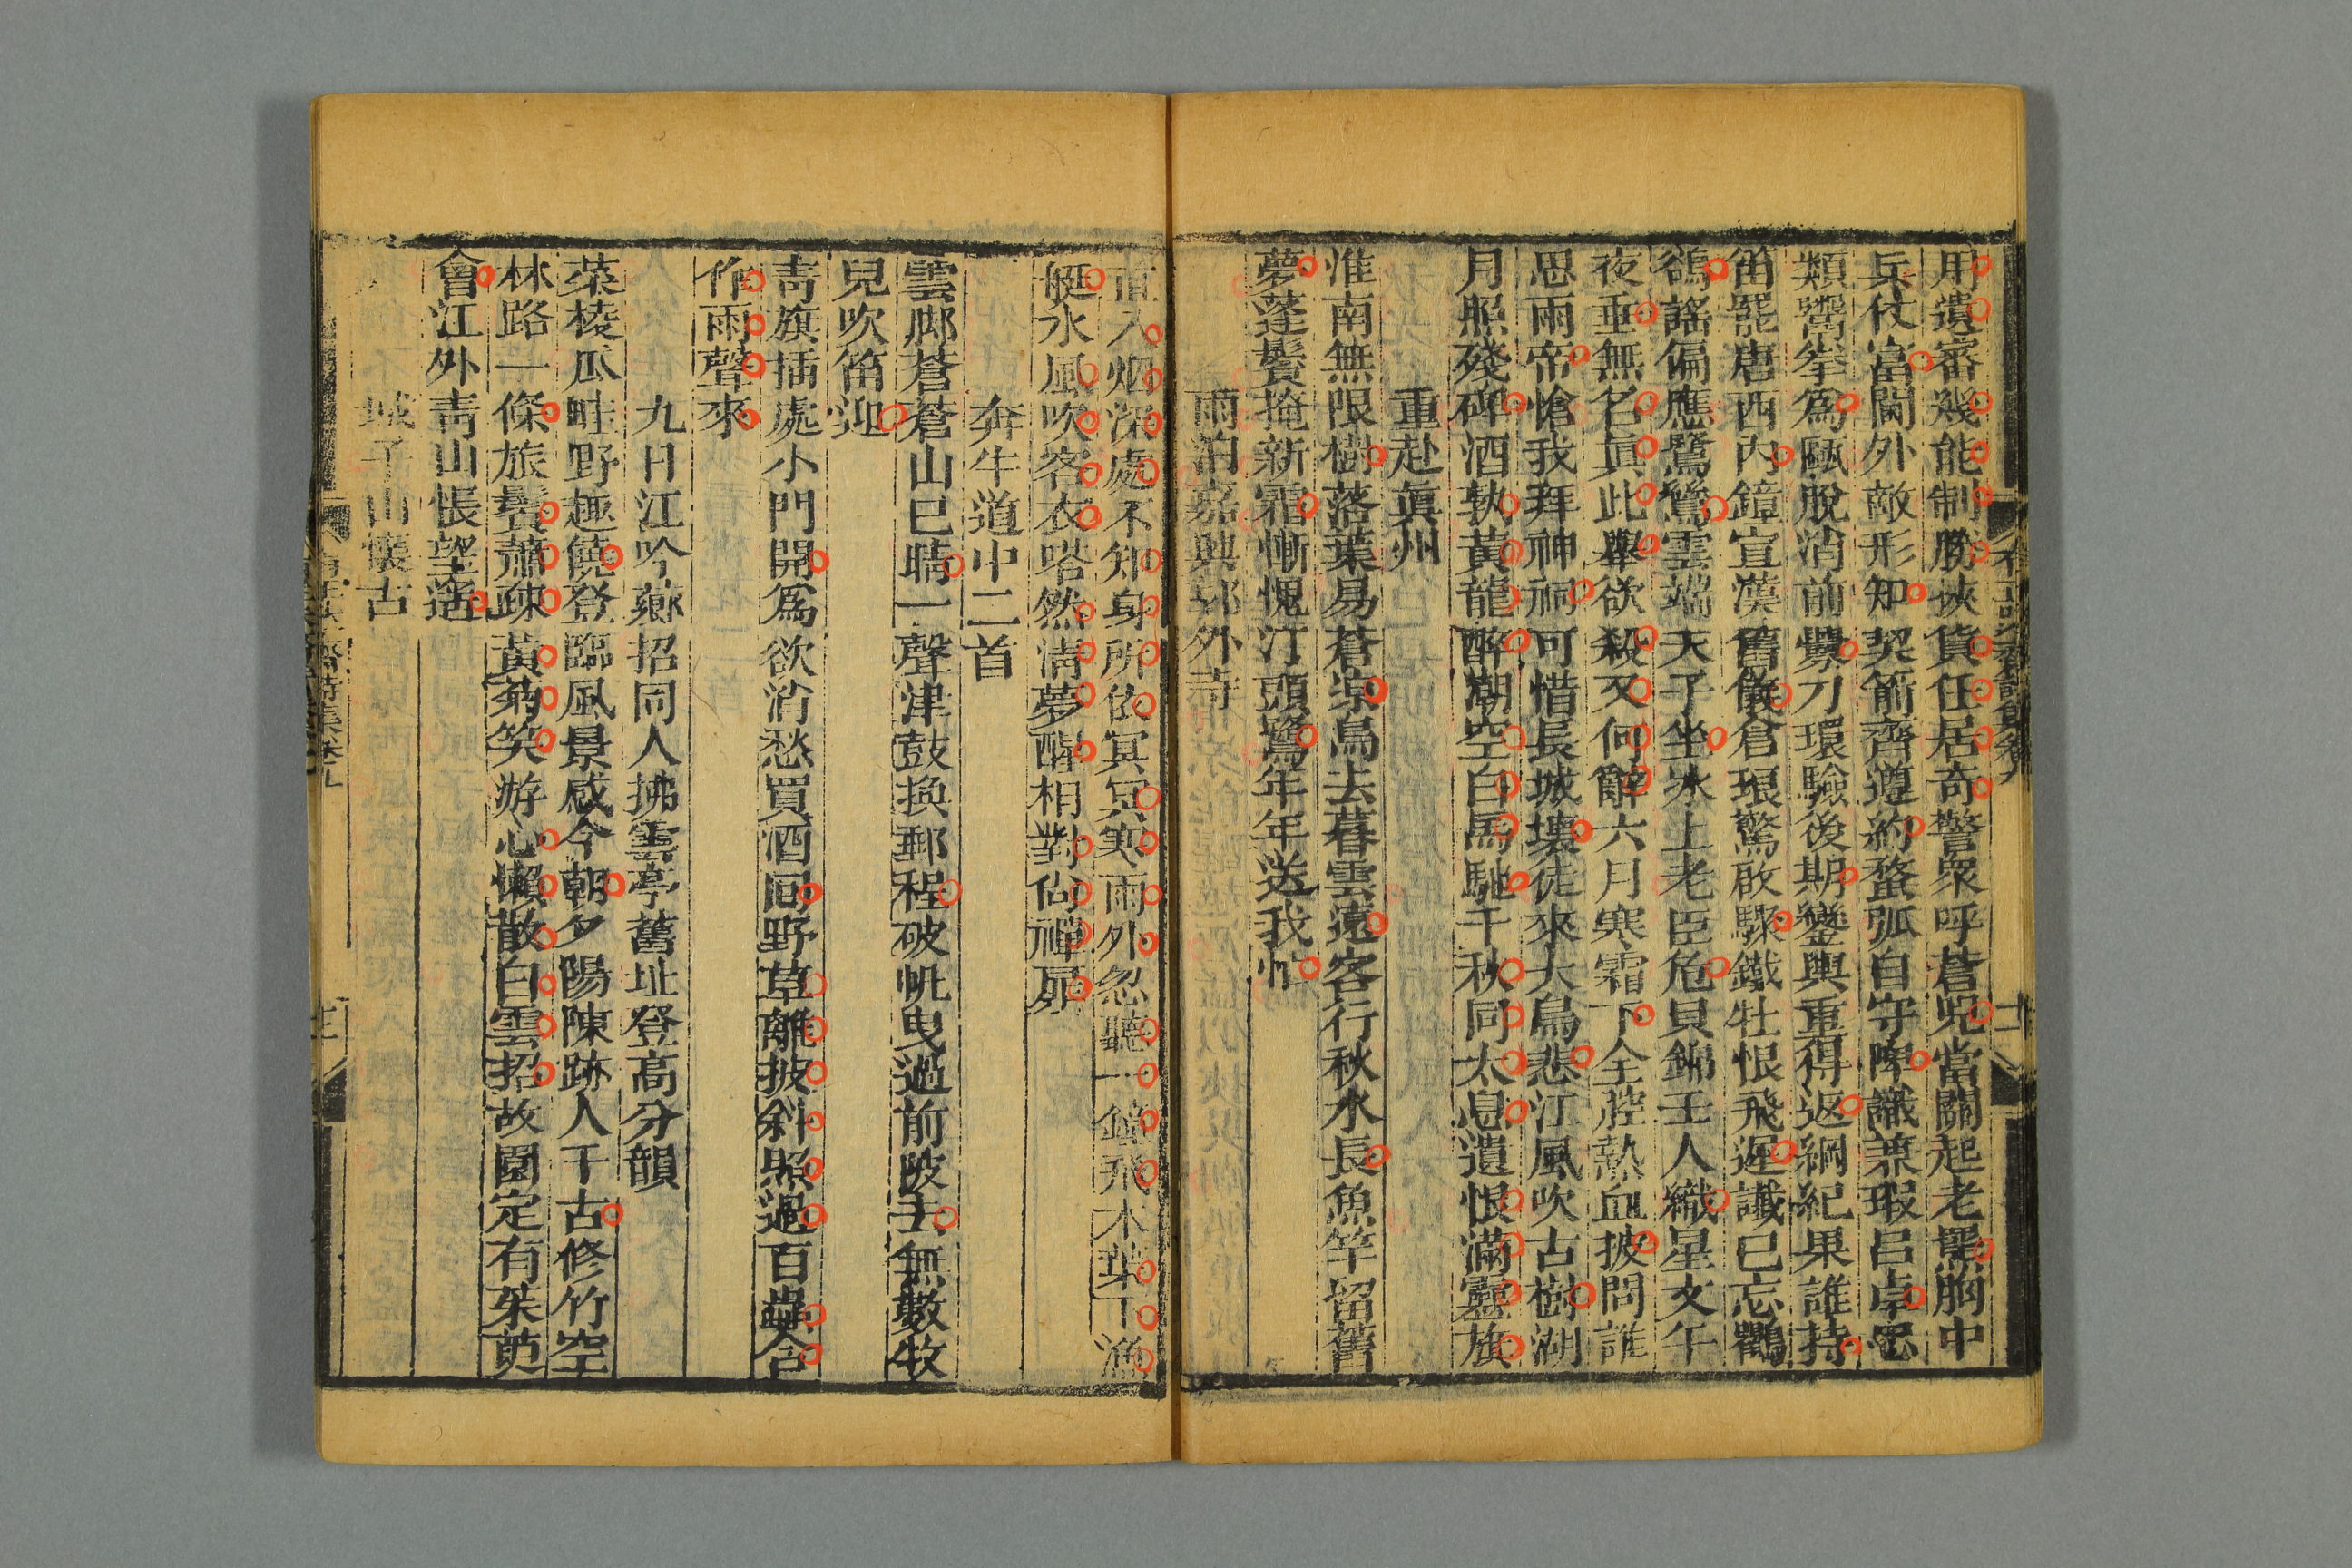 用遺審幾能制勝挾貨任居奇警衆呼蒼兕當關起老羆胸中
兵仗富閫外敵形知契箭齊遵約蝥弧自守陴識兼瑕呂卓忠
類鬻拳爲甌脫消前釁刀環驗後期鑾輿重得返綱紀果誰持
笛罷唐西內鐘宣漢舊儀倉琅驚啟驟鐵牡恨飛遲讖已忘鸜
鵒謠偏應鷺鷥雲端天子坐氷上老臣危貝錦壬人織星文午
夜垂無名眞此舉欲殺又何辭六月寒霜下全腔熱血披問誰
思雨帝愴我拜神祠可惜長城壞徒來大鳥悲江風吹古樹湖
月照殘碑酒執黃龍醉潮空白馬馳千秋同太息遺恨滿靈旗
重赴眞州
淮南無限樹落葉易蒼涼鳥去暮雲遠客行秋水長魚竿留舊
夢蓬鬢掩新霜慚愧汀頭鷺年年送我忙
雨泊嘉興郭外寺
直入烟深處不知身所依冥冥寒雨外忽聽一鐘飛木葉下漁
艇水風吹客衣嗒然淸夢醒相對尙禪扉
奔牛道中二首
雲脚蒼蒼山已晴一聲津鼓換郵程破帆曳過前陂去無數牧
兒吹笛迎
靑旗插處小門開爲欲消愁買酒回野草離披斜照過百蟲合
作雨聲來
九日江吟薌招同人拂雲亭舊址登高分韻
菜棱瓜畦野趣饒登臨風景感今朝夕陽陳跡人千古修竹空
林路一條旅鬢蕭疎黃菊笑游心懶散白雲招故園定有茱萸
會江外靑山悵望遙
子山懷古